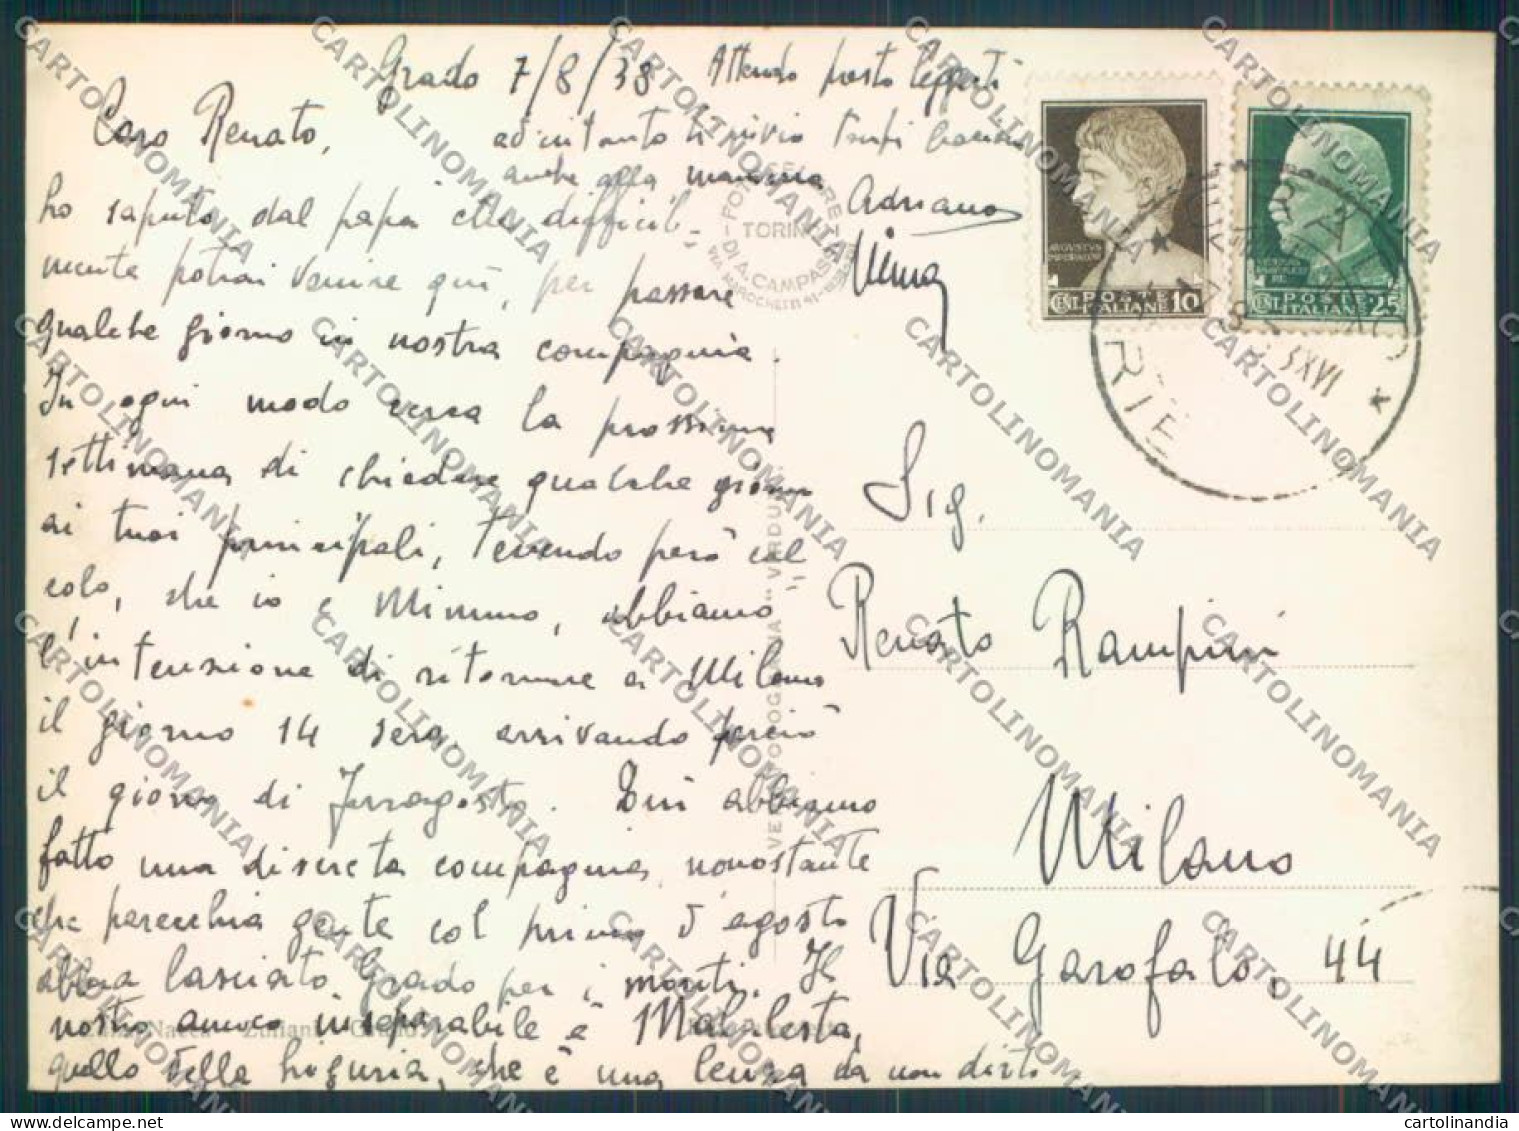 Grado 7/8/38
Attendo presto
Caro Renato,
ad intanto ti invio
anche alla mamma
Adriano
ho saputo dal papà che difficil-
mente potrai venire quì, per passare
qualche giorno in nostra compagnia.
In ogni modo cerca la prossima
settimana di chiedere qualche giorno
ai tuoi principali, tenendo però cal
colo, che io e Mimmo, abbiamo
l'intenzione di ritornare a Milano
il giorno 14 sera, arrivando perciò
il giorno di Ferragosto. Quì abbiamo
fatto una discreta compagnia, nonostante
che parecchia gente col primo d'agosto
abbia lasciato Grado per i monti. Il
nostro amico inseparabile è Malatesta,
quello della Liguria, che è una lenza da non dirti.
Sig.
Renato Rampini
Milano
Via Garofalo, 44
FOTOCELERE
DI A. CAMPASSI
TORINO
POSTE ITALIANE
CENT 10
POSTE ITALIANE
CENT 25
CARTOLINOMANIA
cartolinandia